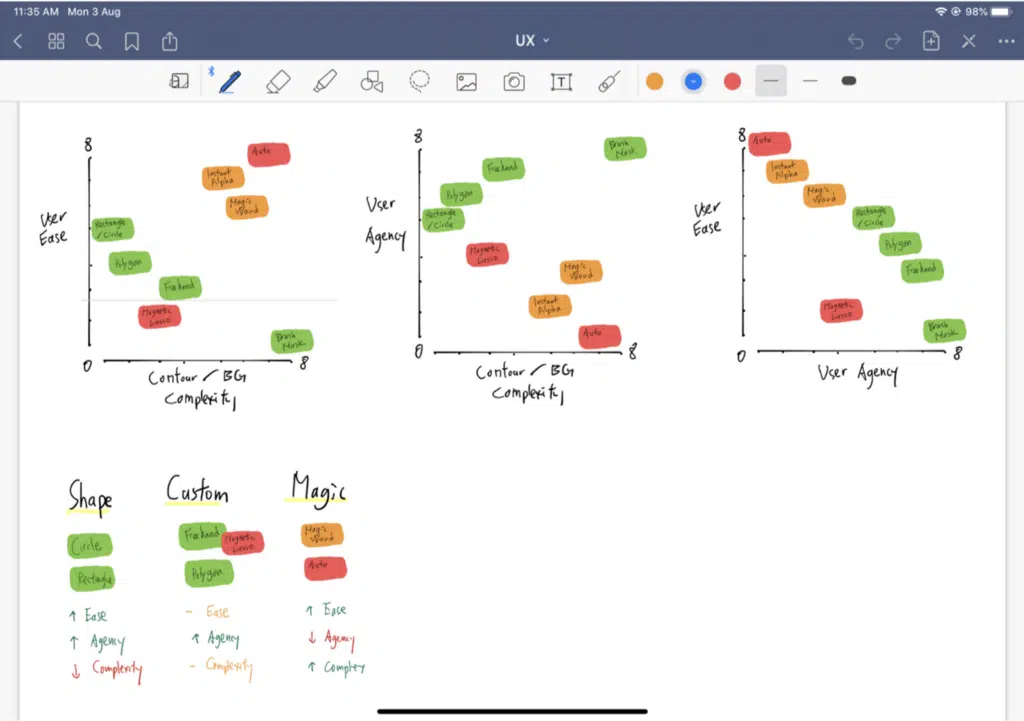 11:35 AM Mon 3 Aug
98%
UX
8
User
Ease
Auto
Instant
Alpha
Magic
Wand
Rectangle
/ Circle
Polygon
Freehand
Magnetic
Lasso
Brush
Mask
0
8
Contour / BG
Complexity
8
User
Agency
Brush
Mask
Freehand
Polygon
Rectangle
/ Circle
Magnetic
Lasso
Magic
Wand
Instant
Alpha
Auto
0
8
Contour / BG
Complexity
8
User
Ease
Auto
Instant
Alpha
Magic
Wand
Rectangle
/ Circle
Polygon
Freehand
Magnetic
Lasso
Brush
Mask
0
8
User Agency
Shape
Circle
Rectangle
↑ Ease
↑ Agency
↓ Complexity
Custom
Freehand
Magnetic
Lasso
Polygon
- Ease
↑ Agency
- Complexity
Magic
Magic
Wand
Auto
↑ Ease
↓ Agency
↑ Complex